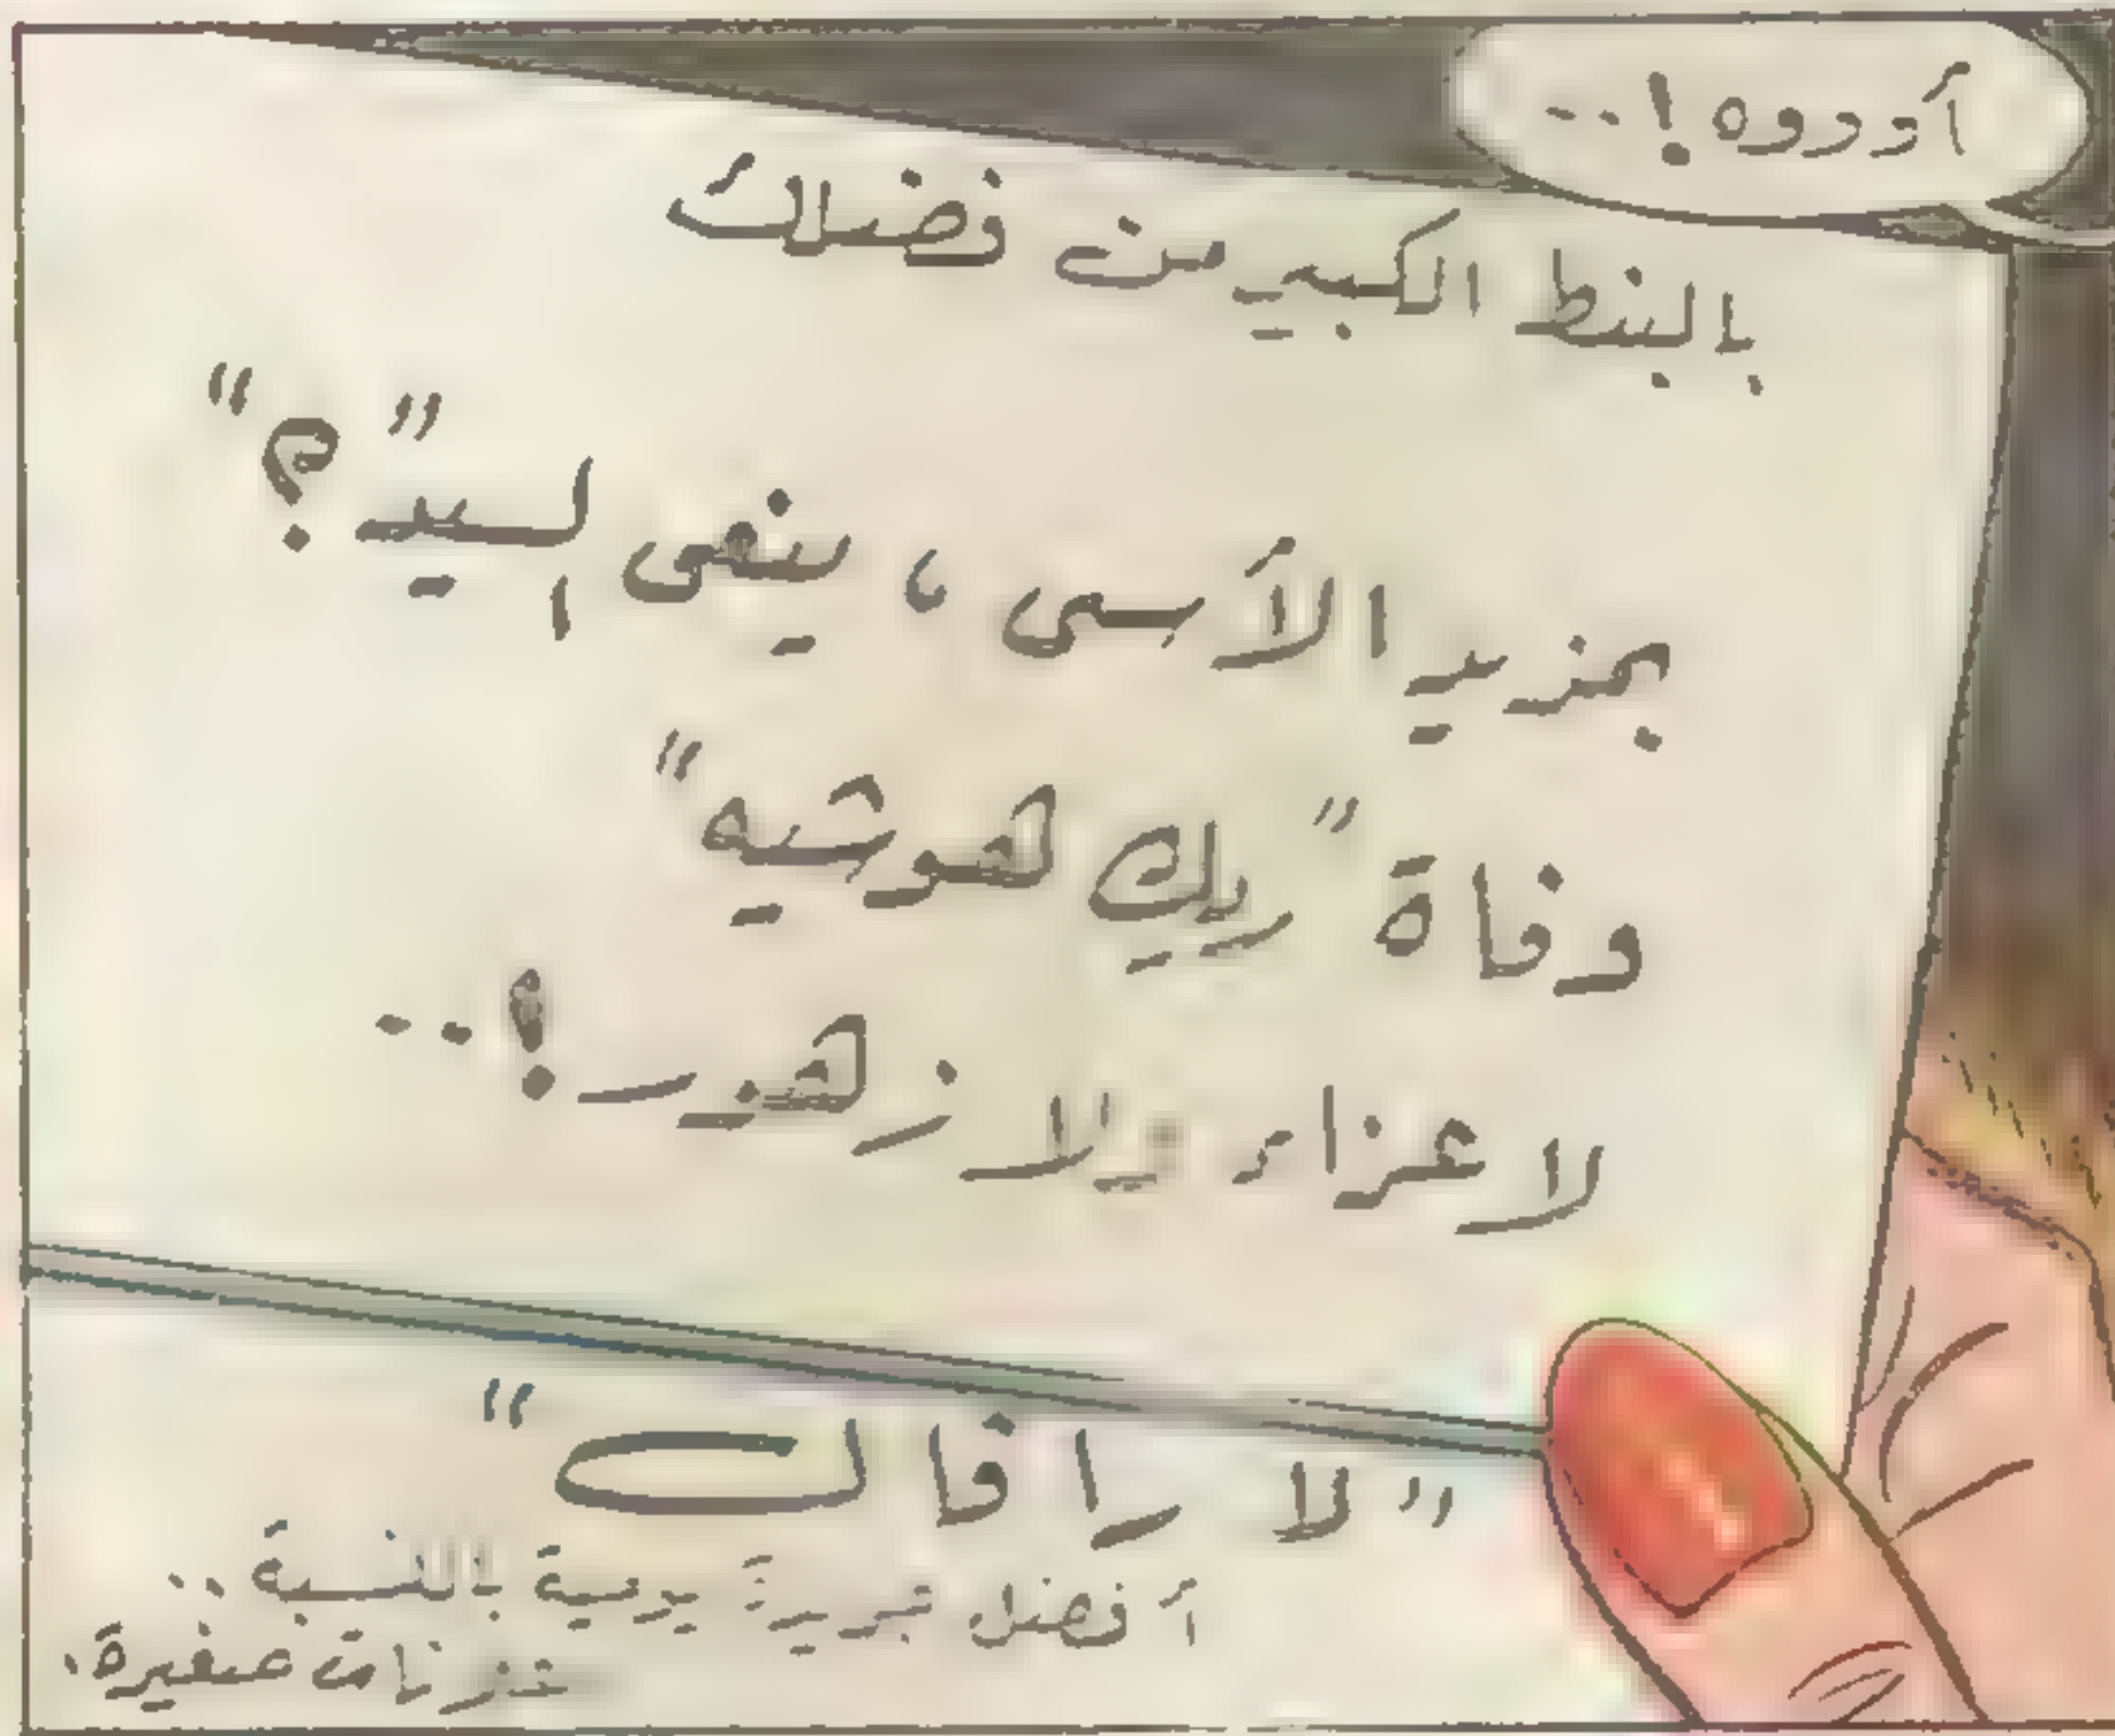 أوروه !..
بالبنط الكبير من فضلك
بمزيد الأسى ، ينعى إليد "؟"
وفاة "ريك هوشيه"
لا عزاء ولا زهور !..
"لا رافال"
أفضل جريدة يومية بالنسبة ..
صغيرة .